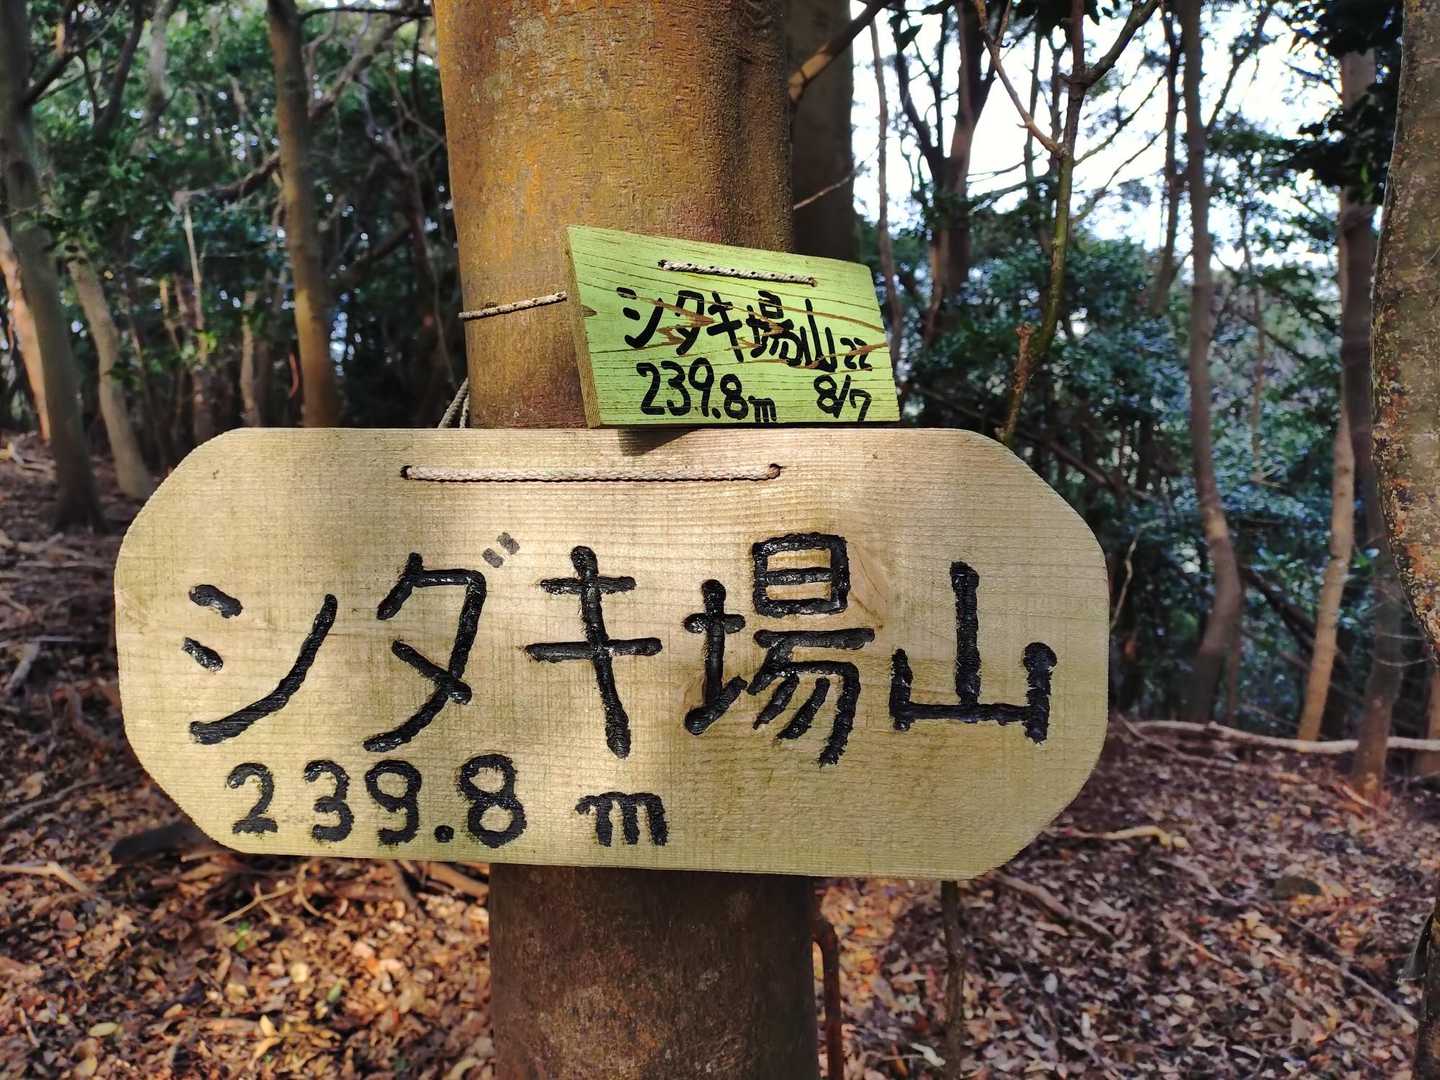 シダキ場山22
239.8m 8/7
シダキ場山
239.8m